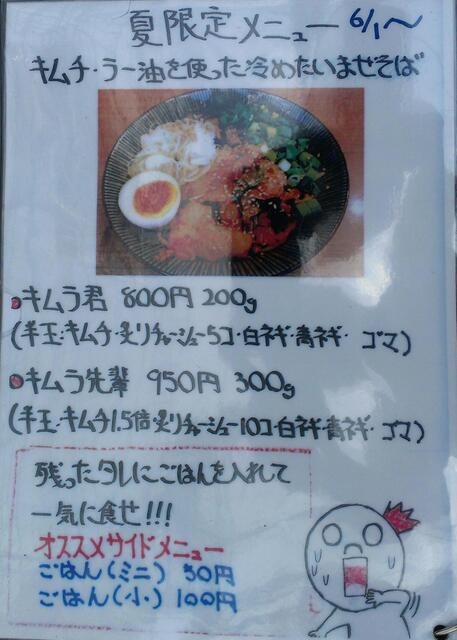 夏限定メニュー 6/1〜
キムチ・ラー油を使った冷めたいまぜそば
キムラ君 800円 200g
(半玉・キムチ・炙りチャーシュー5コ・白ネギ・青ネギ・ゴマ)
キムラ先輩 950円 300g
(半玉・キムチ1.5倍・炙りチャーシュー10コ・白ネギ・青ネギ・ゴマ)
残ったタレにごはんを入れて
一気に食せ!!!
オススメサイドメニュー
ごはん(ミニ) 50円
ごはん(小) 100円